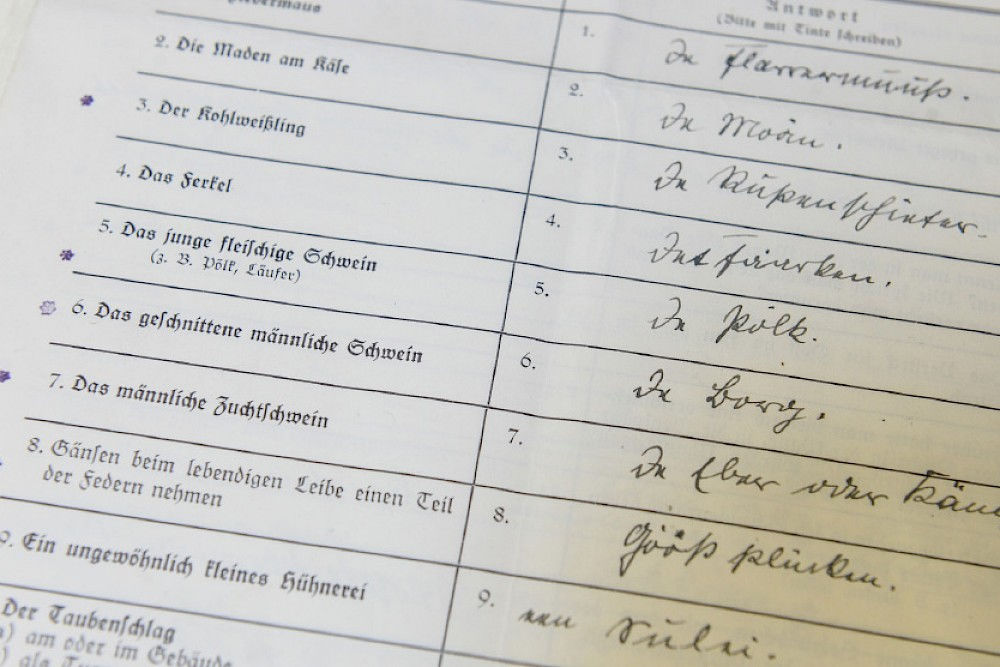 Antwort
(Bitte mit Tinte schreiben)
1. De Flarrermuuß.
2. Die Maden am Käse
2. De Moän.
3. Der Kohlweißling
3. De Rupenschieter.
4. Das Ferkel
4. Det Faerken.
5. Das junge fleischige Schwein
(z. B. Pölk, Läufer)
5. De Pölk.
6. Das geschnittene männliche Schwein
6. De Borg.
7. Das männliche Zuchtschwein
7. De Eber oder
8. Gänsen beim lebendigen Leibe einen Teil
der Federn nehmen
8. Göös plücken.
9. Ein ungewöhnlich kleines Hühnerei
9. een
Der Taubenschlag
) am oder im Gebäude